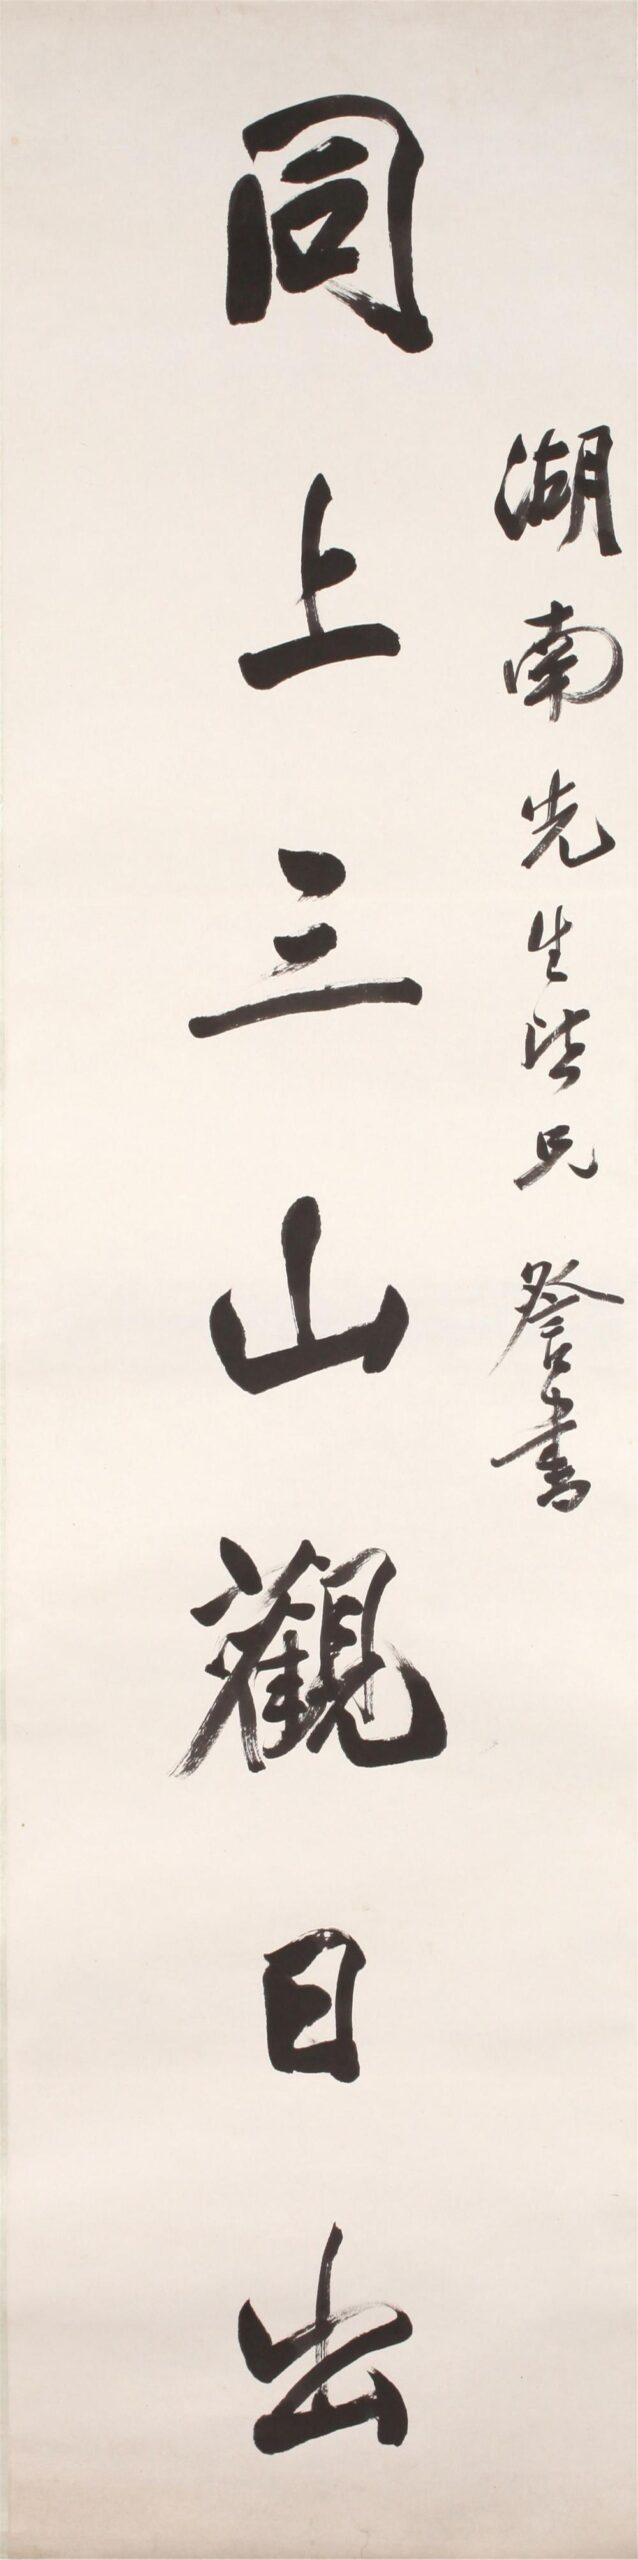 湖南先生法兄 詧書
同上三山觀日出